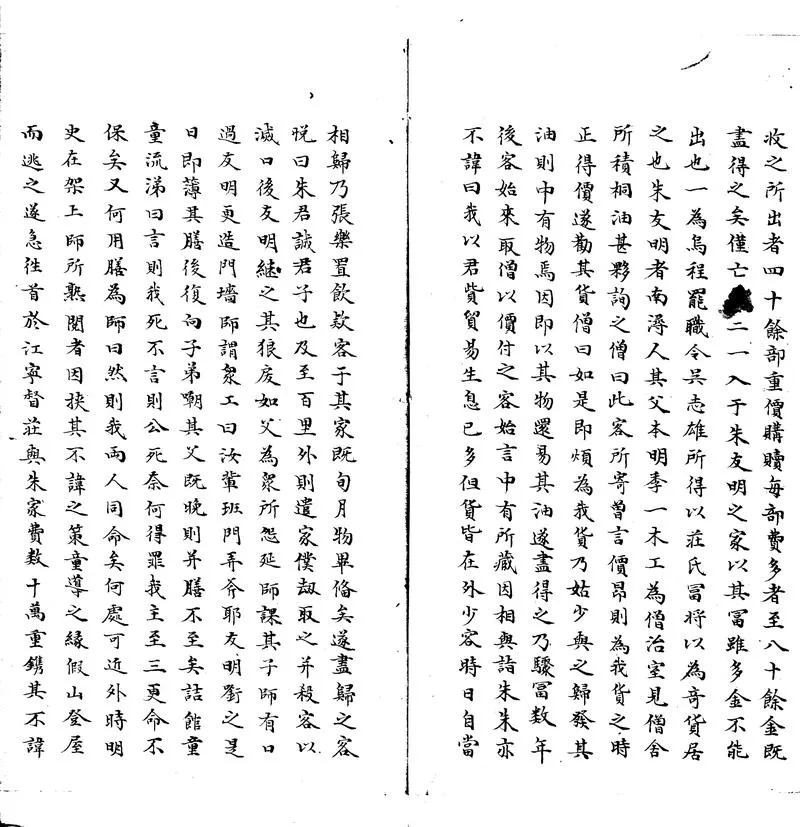 收之所出者四十餘部重價購贖每部費多者至八十餘金既
盡得之矣僅亡二一入于朱友明之家以其冨雖多金不能
出也一為烏程罷職令吳志雄所得以莊氏冨将以為奇貨居
之也朱友明者南潯人其父本明季一木工為僧治室見僧舍
所積桐油甚夥詢之僧曰此客所寄曽言價昂則為我貨之時
正得價遂勸其貨僧曰如是即煩為我貨乃姑少與之歸發其
油則中有物焉因即以其物還易其油遂盡得之乃驟冨数年
後客始來取僧以價付之客始言中有所藏因相與詣朱朱亦
不諱曰我以君貲貿易生息已多但貨皆在外少容時日自當
相歸乃張樂置飲欵客于其家既旬月物畢俻矣遂盡歸之客
悅曰朱君誠君子也及至百里外則遣家僕刼取之并殺客以
滅口後友明繼之其狼戾如父為衆所怨延師課其子師有口
過友明更造門墻師謂衆工曰汝輩班門弄斧耶友明銜之是
日即薄其膳後復向子弟嘲其父既晚則并膳不至矣詰館童
童流涕曰言則我死不言則公死奈何得罪我主至三更命不
保矣又何用膳為師曰然則我兩人同命矣何處可近外時明
史在架上師所熟閱者因挾其不諱之策童導之緣假山登屋
而逃之遂急徃首於江寧督莊與朱家費数十萬重鐫其不諱